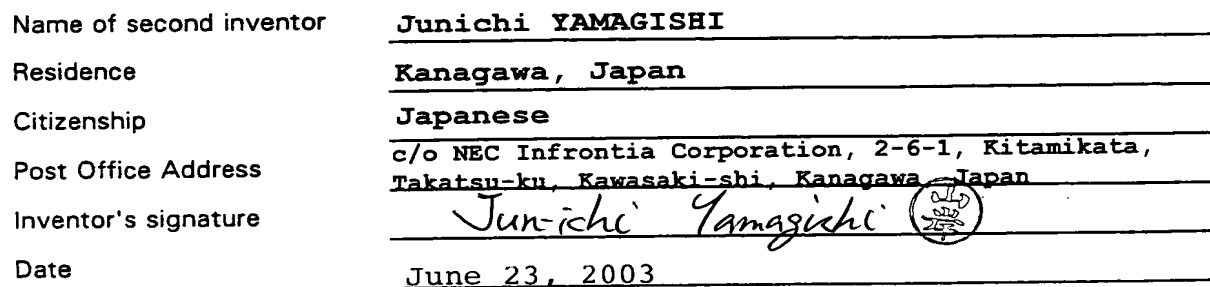 Name of second inventor Junichi YAMAGISHI
Residence Kanagawa, Japan
Citizenship Japanese
Post Office Address c/o NEC Infrontia Corporation, 2-6-1, Kitamikata,
Takatsu-ku, Kawasaki-shi, Kanagawa Japan
Inventor's signature Jun-ichi Yamagishi
Date June 23, 2003